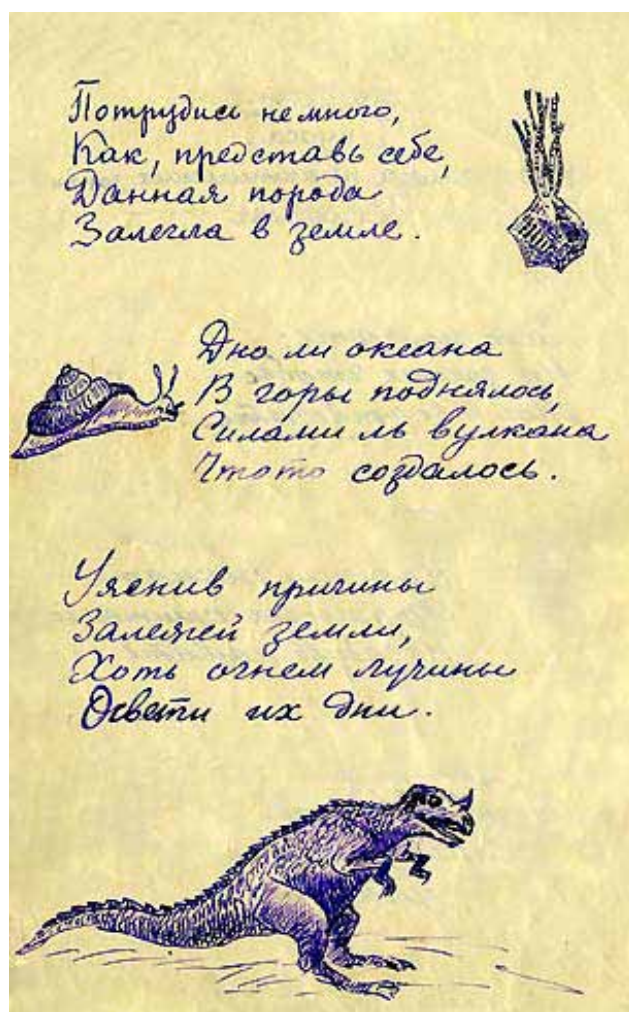 Потрудись немного,
Как, представь себе,
Данная порода
Залегла в земле.
Дно ли океана
В горы поднялось,
Силами ль вулкана
Чтото создалось.
Уяснив причины
Залежей земли,
Хоть огнем лучины
Освети их дни.